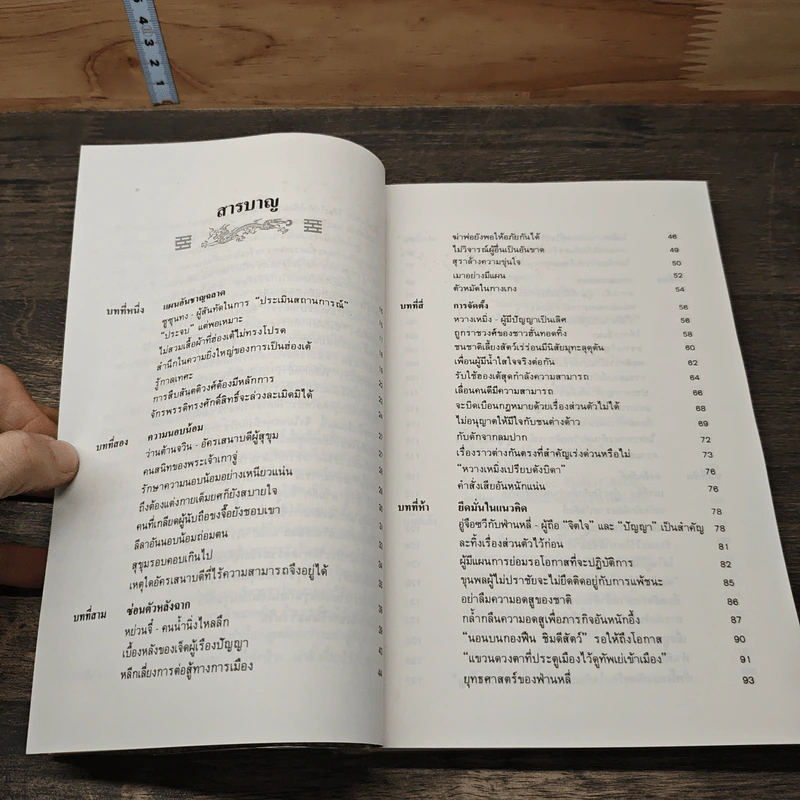 4
3
2
1
สารบาญ
บทที่หนึ่ง แผนอันชาญฉลาด
ซูซุนทง - ผู้สันทัดในการ "ประเมินสถานการณ์"
"ประจบ" แต่พอเหมาะ
ไม่สวมเสื้อผ้าที่ฮ่องเต้ไม่ทรงโปรด
สำนึกในความยิ่งใหญ่ของการเป็นฮ่องเต้
รู้กาลเทศะ
การสืบสันตติวงศ์ต้องมีหลักการ
จักรพรรดิทรงศักดิ์สิทธิ์จะล่วงละเมิดมิได้
บทที่สอง ความนอบน้อม
ว่านต้านจวิน - อัครเสนาบดีผู้สุขุม
คนสนิทของพระเจ้าเกาจู่
รักษาความนอบน้อมอย่างเหนียวแน่น
ถึงต้องแต่งกายเต็มยศก็ยังสบายใจ
คนที่เกลียดผู้นับถือขงจื้อยังชอบเขา
ลีลาอันนอบน้อมถ่อมตน
สุขุมรอบคอบเกินไป
เหตุใดอัครเสนาบดีที่ไร้ความสามารถจึงอยู่ได้
บทที่สาม ซ่อนตัวหลังฉาก
หย่วนจี๋ - คนน้ำนิ่งไหลลึก
เบื้องหลังของเจ็ดผู้เรืองปัญญา
หลีกเลี่ยงการต่อสู้ทางการเมือง 44
ฆ่าพ่อยังพอให้อภัยกันได้ 46
ไม่วิจารณ์ผู้อื่นเป็นอันขาด 49
สุราล้างความขุ่นใจ 50
เมาอย่างมีแผน 52
ตัวหมัดในกางเกง 54
บทที่สี่ การจัดตั้ง 56
หวางเหมิ่ง - ผู้มีปัญญาเป็นเลิศ 56
ถูกราชวงศ์ของชาวฮั่นทอดทิ้ง 58
ชนชาติเลี้ยงสัตว์เร่ร่อนมีนิสัยมุทะลุดุดัน 60
เพื่อนผู้มีน้ำใสใจจริงต่อกัน 62
รับใช้ฮ่องเต้สุดกำลังความสามารถ 64
เลื่อนคนดีมีความสามารถ 66
จะบิดเบือนกฎหมายด้วยเรื่องส่วนตัวไม่ได้ 68
ไม่อนุญาตให้มีใจกับชนต่างด้าว 69
กับดักจากลมปาก 72
เรื่องราวต่างกันตรงที่สำคัญเร่งด่วนหรือไม่ 73
"หวางเหมิ่งเปรียบดังบิดา" 76
คำสั่งเสียอันหนักแน่น 76
บทที่ห้า ยึดมั่นในแนวคิด 78
อู่จือซวีกับฟ่านหลี่ - ผู้ถือ "จิตใจ" และ "ปัญญา" เป็นสำคัญ 78
ละทิ้งเรื่องส่วนตัวไว้ก่อน 81
ผู้มีแผนการย่อมรอโอกาสที่จะปฏิบัติการ 82
ขุนพลผู้ไม่ปราชัยจะไม่ยึดติดอยู่กับการแพ้ชนะ 85
อย่าลืมความอดสูของชาติ 86
กล้ำกลืนความอดสูเพื่อภารกิจอันหนักอึ้ง 87
"นอนบนกองฟืน ชิมดีสัตว์" รอให้ถึงโอกาส 90
"แขวนดวงตาที่ประตูเมืองไว้ดูทัพเย่เข้าเมือง" 91
ยุทธศาสตร์ของฟ่านหลี่ 93